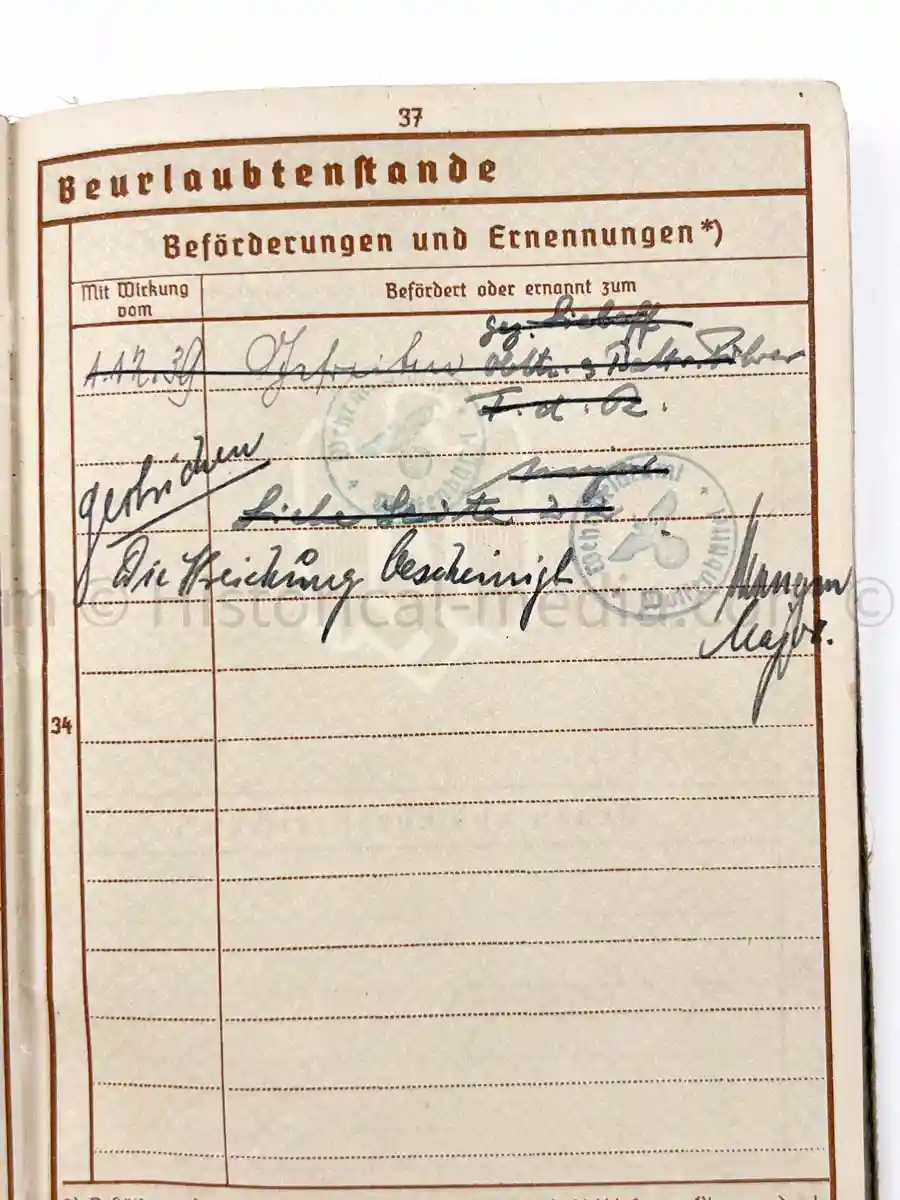 37
Beurlaubtenstande
Beförderungen und Ernennungen*)
Mit Wirkung
vom
Befördert oder ernannt zum
gez.
1.12.39 Gefreiten Obltn. u. Battr. Führer
F. d. R.
gestrichen
Siehe Seite
Die Streichung bescheinigt
Major.
© Historical-media.com ©
34